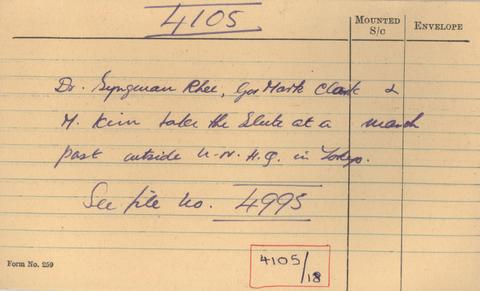 4105
MOUNTED S/C
ENVELOPE
Dr. Syngman Rhee, Gen Mark Clark &
M. Kim take the Salute at a march
past outside U.N.H.Q. in Tokyo.
See file no. 4995
4105/18
Form No. 259